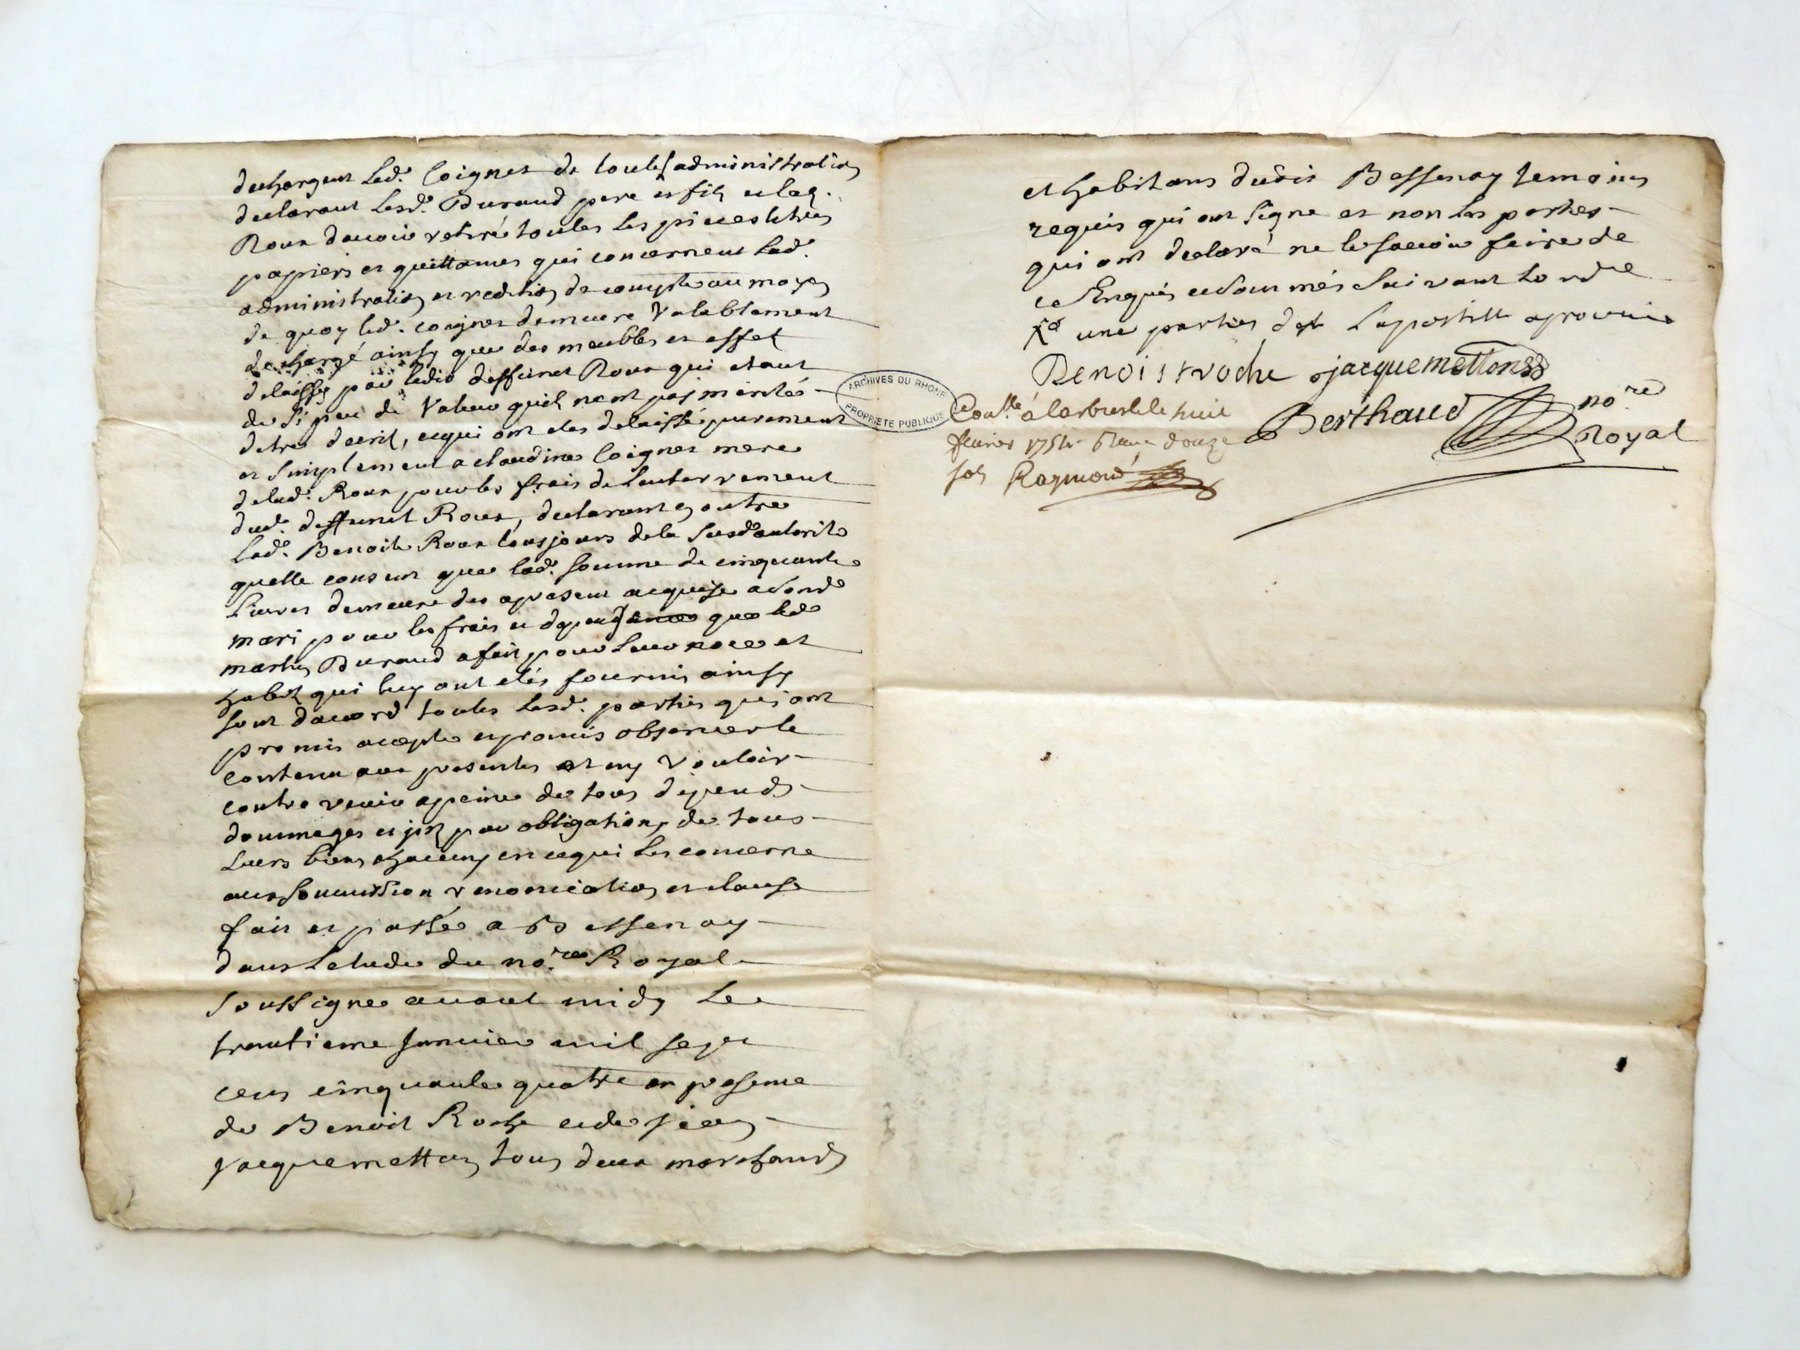 dechargent Led. Coignet de toutes administration
declarant Lesd. Durand pere et fils et lad.
Roux davoir retiré toutes les pieces titres
papiers et quittances qui concernent lad.
administration et redition de compte au moyen
de quoy led. coignet demeure valablement
dechargé ainsy que des meubles et effet
delaissés par ledit deffunct Roux qui etant
de si peu de valeur quil nont pas merités
detre decrit, et qui ont etes delaissé purement
et simplement a claudine Coignet mere
de lad. Roux pour les frais de Lenterrement
dud. deffunct Roux, declarant en outre
Lad. Benoite Roux tousjours de la susd. autorité
quelle consent que lad. somme de cinquante
Livres demeure des apresent acquise a sond.
mari pour les frais et que led.
martin Durand a fait pour Leur noce et
habit qui luy ont etés fournis ainsy
sont dacord toutes Lesd. parties qui ont
promis accepté et promis observer le
contenu aux presentes et ny vouloir
contrevenir a peine de tous depends
dommages et par obligation de tous
Leurs biens chacun en ce qui les concerne
aux soumission renonciation et clause
fait et passé a Bessenay
dans Letude du no.re Royal
soussigné avant midy Le
trantieme Janvier mil sept
cens cinquante quatre en presence
de Benoit Roche et de jean
jacquemetton tous deux marchands
et habitans dudit Bessenay temoins
requis qui ont signé et non les parties
qui ont declaré ne le scavoir faire de
ce Enquis et sommés suivant Lordre
une parties Lapostille aprouvé
Benoist roche jacquemetton
Berthaud no.re
Royal
Con.lle à larbresle le huit
fevrier 1754 douze
sols Raymond
ARCHIVES DU RHONE
PROPRIETE PUBLIQUE